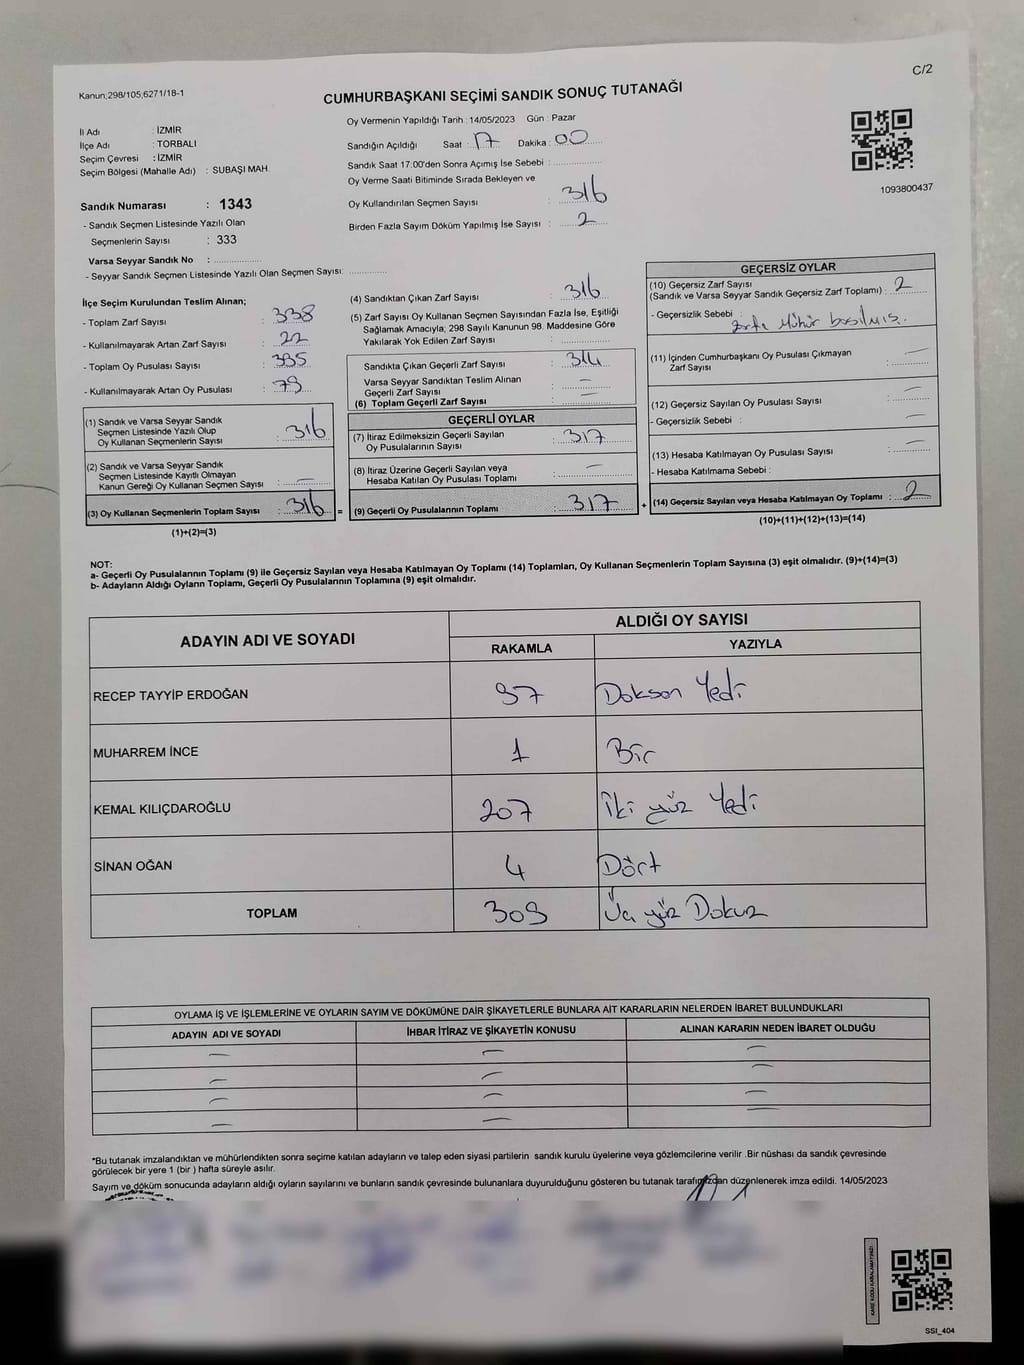 C/2
Kanun;298/105;6271/18-1
CUMHURBAŞKANI SEÇİMİ SANDIK SONUÇ TUTANAĞI
İl Adı : İZMİR
İlçe Adı : TORBALI
Seçim Çevresi : İZMİR
Seçim Bölgesi (Mahalle Adı) : SUBAŞI MAH.
Sandık Numarası : 1343
- Sandık Seçmen Listesinde Yazılı Olan
Seçmenlerin Sayısı : 333
Varsa Seyyar Sandık No : ....................
- Seyyar Sandık Seçmen Listesinde Yazılı Olan Seçmen Sayısı: ..............
Oy Vermenin Yapıldığı Tarih : 14/05/2023 Gün : Pazar
Sandığın Açıldığı Saat : 17 Dakika : 00
Sandık Saat 17:00'den Sonra Açımış İse Sebebi : ....................
Oy Verme Saati Bitiminde Sırada Bekleyen ve
Oy Kullandırılan Seçmen Sayısı : 316
Birden Fazla Sayım Döküm Yapılmış İse Sayısı : 2
1093800437
İlçe Seçim Kurulundan Teslim Alınan;
- Toplam Zarf Sayısı : 338
- Kullanılmayarak Artan Zarf Sayısı : 22
- Toplam Oy Pusulası Sayısı : 395
- Kullanılmayarak Artan Oy Pusulası : 79
(1) Sandık ve Varsa Seyyar Sandık
Seçmen Listesinde Yazılı Olup
Oy Kullanan Seçmenlerin Sayısı : 316
(2) Sandık ve Varsa Seyyar Sandık
Seçmen Listesinde Kayıtlı Olmayan
Kanun Gereği Oy Kullanan Seçmen Sayısı : —
(3) Oy Kullanan Seçmenlerin Toplam Sayısı : 316 =
(1)+(2)=(3)
(4) Sandıktan Çıkan Zarf Sayısı : 316
(5) Zarf Sayısı Oy Kullanan Seçmen Sayısından Fazla İse, Eşitliği
Sağlamak Amacıyla; 298 Sayılı Kanunun 98. Maddesine Göre
Yakılarak Yok Edilen Zarf Sayısı : ....................
Sandıkta Çıkan Geçerli Zarf Sayısı : 314
Varsa Seyyar Sandıktan Teslim Alınan
Geçerli Zarf Sayısı : —
(6) Toplam Geçerli Zarf Sayısı : —
GEÇERLİ OYLAR
(7) İtiraz Edilmeksizin Geçerli Sayılan
Oy Pusulalarının Sayısı : 317
(8) İtiraz Üzerine Geçerli Sayılan veya
Hesaba Katılan Oy Pusulası Toplamı : —
(9) Geçerli Oy Pusulalarının Toplamı : 317 +
GEÇERSİZ OYLAR
(10) Geçersiz Zarf Sayısı
(Sandık ve Varsa Seyyar Sandık Geçersiz Zarf Toplamı) : 2
- Geçersizlik Sebebi : Zarfa Mühür basılmış.
(11) İçinden Cumhurbaşkanı Oy Pusulası Çıkmayan
Zarf Sayısı : —
(12) Geçersiz Sayılan Oy Pusulası Sayısı : —
- Geçersizlik Sebebi : —
(13) Hesaba Katılmayan Oy Pusulası Sayısı : —
- Hesaba Katılmama Sebebi :
(14) Geçersiz Sayılan veya Hesaba Katılmayan Oy Toplamı : 2
(10)+(11)+(12)+(13)=(14)
NOT:
a- Geçerli Oy Pusulalarının Toplamı (9) ile Geçersiz Sayılan veya Hesaba Katılmayan Oy Toplamı (14) Toplamları, Oy Kullanan Seçmenlerin Toplam Sayısına (3) eşit olmalıdır. (9)+(14)=(3)
b- Adayların Aldığı Oyların Toplamı, Geçerli Oy Pusulalarının Toplamına (9) eşit olmalıdır.
ADAYIN ADI VE SOYADI ALDIĞI OY SAYISI
RAKAMLA YAZIYLA
RECEP TAYYİP ERDOĞAN 97 Doksan Yedi
MUHARREM İNCE 1 Bir
KEMAL KILIÇDAROĞLU 207 İki yüz Yedi
SİNAN OĞAN 4 Dört
TOPLAM 309 Üç yüz Dokuz
OYLAMA İŞ VE İŞLEMLERİNE VE OYLARIN SAYIM VE DÖKÜMÜNE DAİR ŞİKAYETLERLE BUNLARA AİT KARARLARIN NELERDEN İBARET BULUNDUKLARI
ADAYIN ADI VE SOYADI İHBAR İTİRAZ VE ŞİKAYETİN KONUSU ALINAN KARARIN NEDEN İBARET OLDUĞU
— — —
— — —
— — —
— — —
*Bu tutanak imzalandıktan ve mühürlendikten sonra seçime katılan adayların ve talep eden siyasi partilerin sandık kurulu üyelerine veya gözlemcilerine verilir .Bir nüshası da sandık çevresinde
görülecek bir yere 1 (bir ) hafta süreyle asılır.
Sayım ve döküm sonucunda adayların aldığı oyların sayılarını ve bunların sandık çevresinde bulunanlara duyurulduğunu gösteren bu tutanak tarafımızdan düzenlenerek imza edildi. 14/05/2023
SSI_404